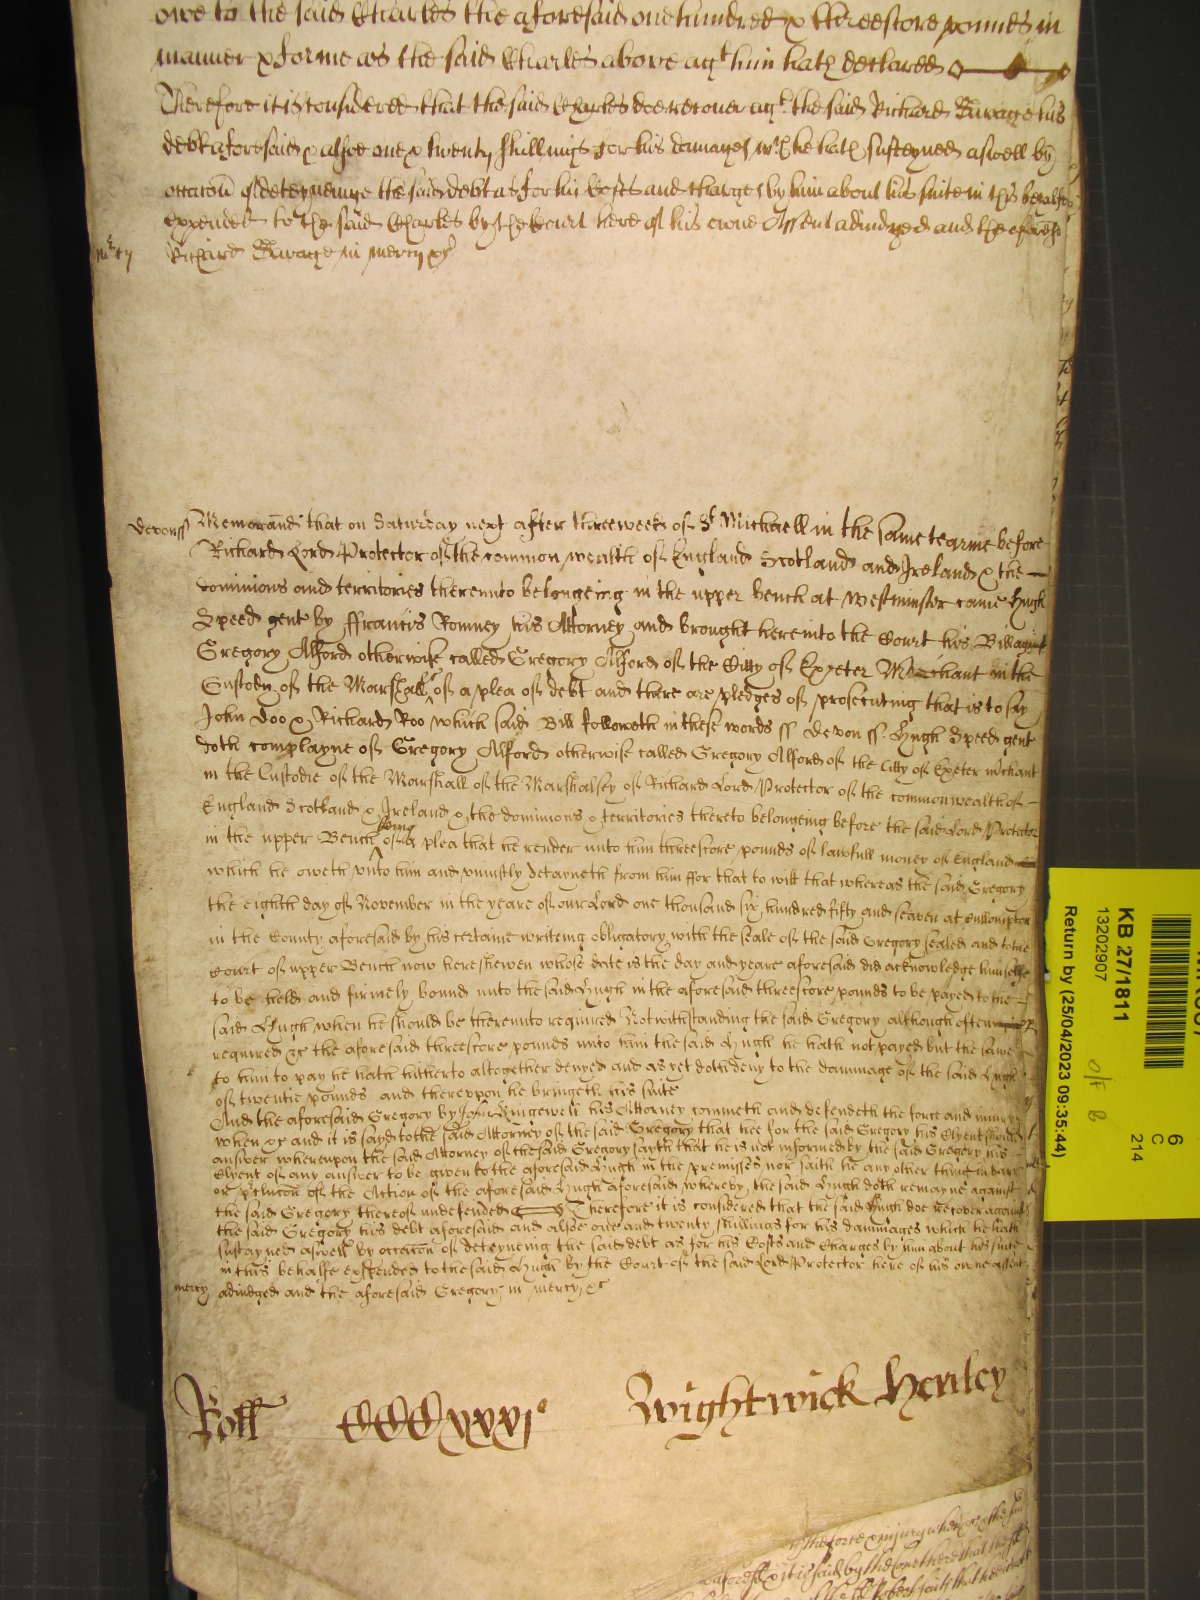 owe to the said Charles the aforesaid one hundred & threescore pounds in
manner & forme as the said Charles above agt him hath declared
Therefore it is considered that the said Charles doe recover agt. the said Richard Burage his
debt aforesaid & alsoe one & twenty shillings for his damages wch he hath susteyned aswell by
occacon of deteyneinge the said debt as for his Costs and charges by him about his suite in this behalfe
expended to the said Charles by the Court here of his owne Assent adiudged and the aforesd
mercy Richard Burage in mercy &c
devonss Memorand that on Saturday next after three weeks of St Michaell in the same tearme before
Richard Lord Protector of the common wealth of England Scotland and Ireland & the
dominions and territories thereunto belongeing in the upper bench at Westminster came Hugh
Speed gent by ffrancis Romney his Attorney and brought here into the Court his Bill against
Gregory Alford otherwise called Gregory Alford of the Citty of Exeter Merchant in the
Custody of the Marshall &c of a plea of debt and there are pledges of prosecuting that is to say
John Doo & Richard Roo which said Bill followeth in these words ss Devon ss. Hugh Speed gent
doth complayne of Gregory Alford otherwise called Gregory Alford of the Citty of Exeter mchant
in the Custodie of the Marshall of the Marshalsey of Richard Lord Protector of the commonwealth of
England Scotland & Ireland & the dominions & territories thereto belongeing before the said Lord Protector
in the upper Bench being of a plea that he render unto him threescore pounds of lawfull money of England
which he oweth unto him and uniustly detayneth from him ffor that to witt that whereas the said Gregory
the eighth day of November in the yeare of our Lord one thousand six hundred fifty and seaven at
in the County aforesaid by his certaine writeing obligatory with the seale of the said Gregory sealed and to the
Court of upper Bench now here shewen whose date is the day and yeare aforesaid did acknowledge himselfe
to be held and firmely bound unto the said Hugh in the aforesaid threescore pounds to be payed to the
said Hugh when he should be thereunto required Notwithstanding the said Gregory although often
required &c the aforesaid threescore pounds unto him the said Hugh he hath not payed but the same
to him to pay he hath hitherto altogether denyed and as yet doth deny to the dammage of the said Hugh
of twentie pounds and thereupon he bringeth his suite
And the aforesaid Gregory by John Ringewell his Attorney commeth and defendeth the force and iniury
when &c and it is sayd to the said Attorney of the said Gregory that hee for the said Gregory his Clyent should
answer whereupon the said Attorney of the said Gregory sayth that he is not informed by the said Gregory his
Clyent of any answer to be given to the aforesaid Hugh in the premisses nor saith he any other thing in barr
or pclucon of the Action of the aforesaid Hugh aforesaid whereby the said Hugh doth remayne against
the said Gregory thereof undefended Therefore it is considered that the said Hugh doe recover against
the said Gregory his debt aforesaid and alsoe one and twenty shillings for his dammages which he hath
sustayned aswell by occacon of deteyneing the said debt as for his Costs and Charges by him about his suite
in this behalfe expended to the said Hugh by the Court of the said Lord Protector here of his owne assent
mercy adiudged and the aforesaid Gregory in mercy &c
Roll CCCxxxjo Wightwick Henley
the force & iniury when &c
aforesd & it is said by the Court here that
KB 27/1811
13202907
Return by (25/04/2023 09:35:44)
6
C
214